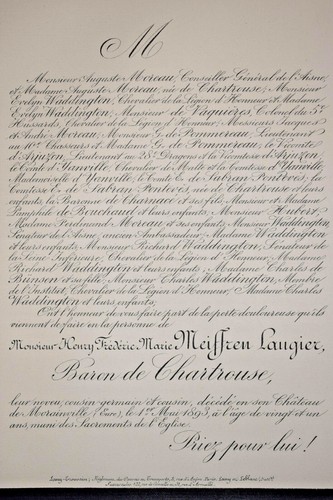 M
Monsieur Auguste Moreau, Conseiller Général de l'Aisne,
et Madame Auguste Moreau, née de Chartrouse; Monsieur
Evelyn Waddington, Chevalier de la Légion d'Honneur et Madame
Evelyn Waddington; Monsieur de Vaquières, Colonel du 5e
Hussards, Chevalier de la Légion d'Honneur; Messieurs Jacques
et André Moreau; Monsieur G. de Pommereau, Lieutenant
au 10e Chasseurs et Madame G. de Pommereau; le Vicomte
d'Arjuzon, Lieutenant au 28e Dragons et la Vicomtesse d'Arjuzon;
le Comte d'Yanville, Chevalier de Malte et la Comtesse d'Yanville,
Mademoiselle d'Yanville; le Comte E. de Sabran Pontevès, la
Comtesse E. de Sabran Pontevès, née de Chartrouse et leurs
enfants, la Baronne de Charnacé et ses fils, Monsieur et Madame
Pamphile de Bouchaud et leurs enfants; Monsieur Hubert,
Madame Ferdinand Moreau et ses enfants; Monsieur Waddington,
Sénateur de l'Aisne, ancien Ambassadeur, Madame Waddington
et leurs enfants; Monsieur Richard Waddington, Sénateur de
la Seine Inférieure, Chevalier de la Légion d'Honneur, Madame
Richard Waddington et leurs enfants; Madame Charles de
Bunsen et sa fille; Monsieur Charles Waddington, Membre
de l'Institut, Chevalier de la Légion d'Honneur, Madame Charles
Waddington et leurs enfants;
Ont l'honneur de vous faire part de la perte douloureuse qu'ils
viennent de faire en la personne de
Monsieur Henry Frédéric Marie Meiffren Laugier,
Baron de Chartrouse,
leur neveu, cousin germain et cousin, décédé en son Château
de Morainville (Eure), le 1er Mai 1893, à l'âge de vingt et un
ans, muni des Sacrements de l'Eglise.
Priez pour lui!